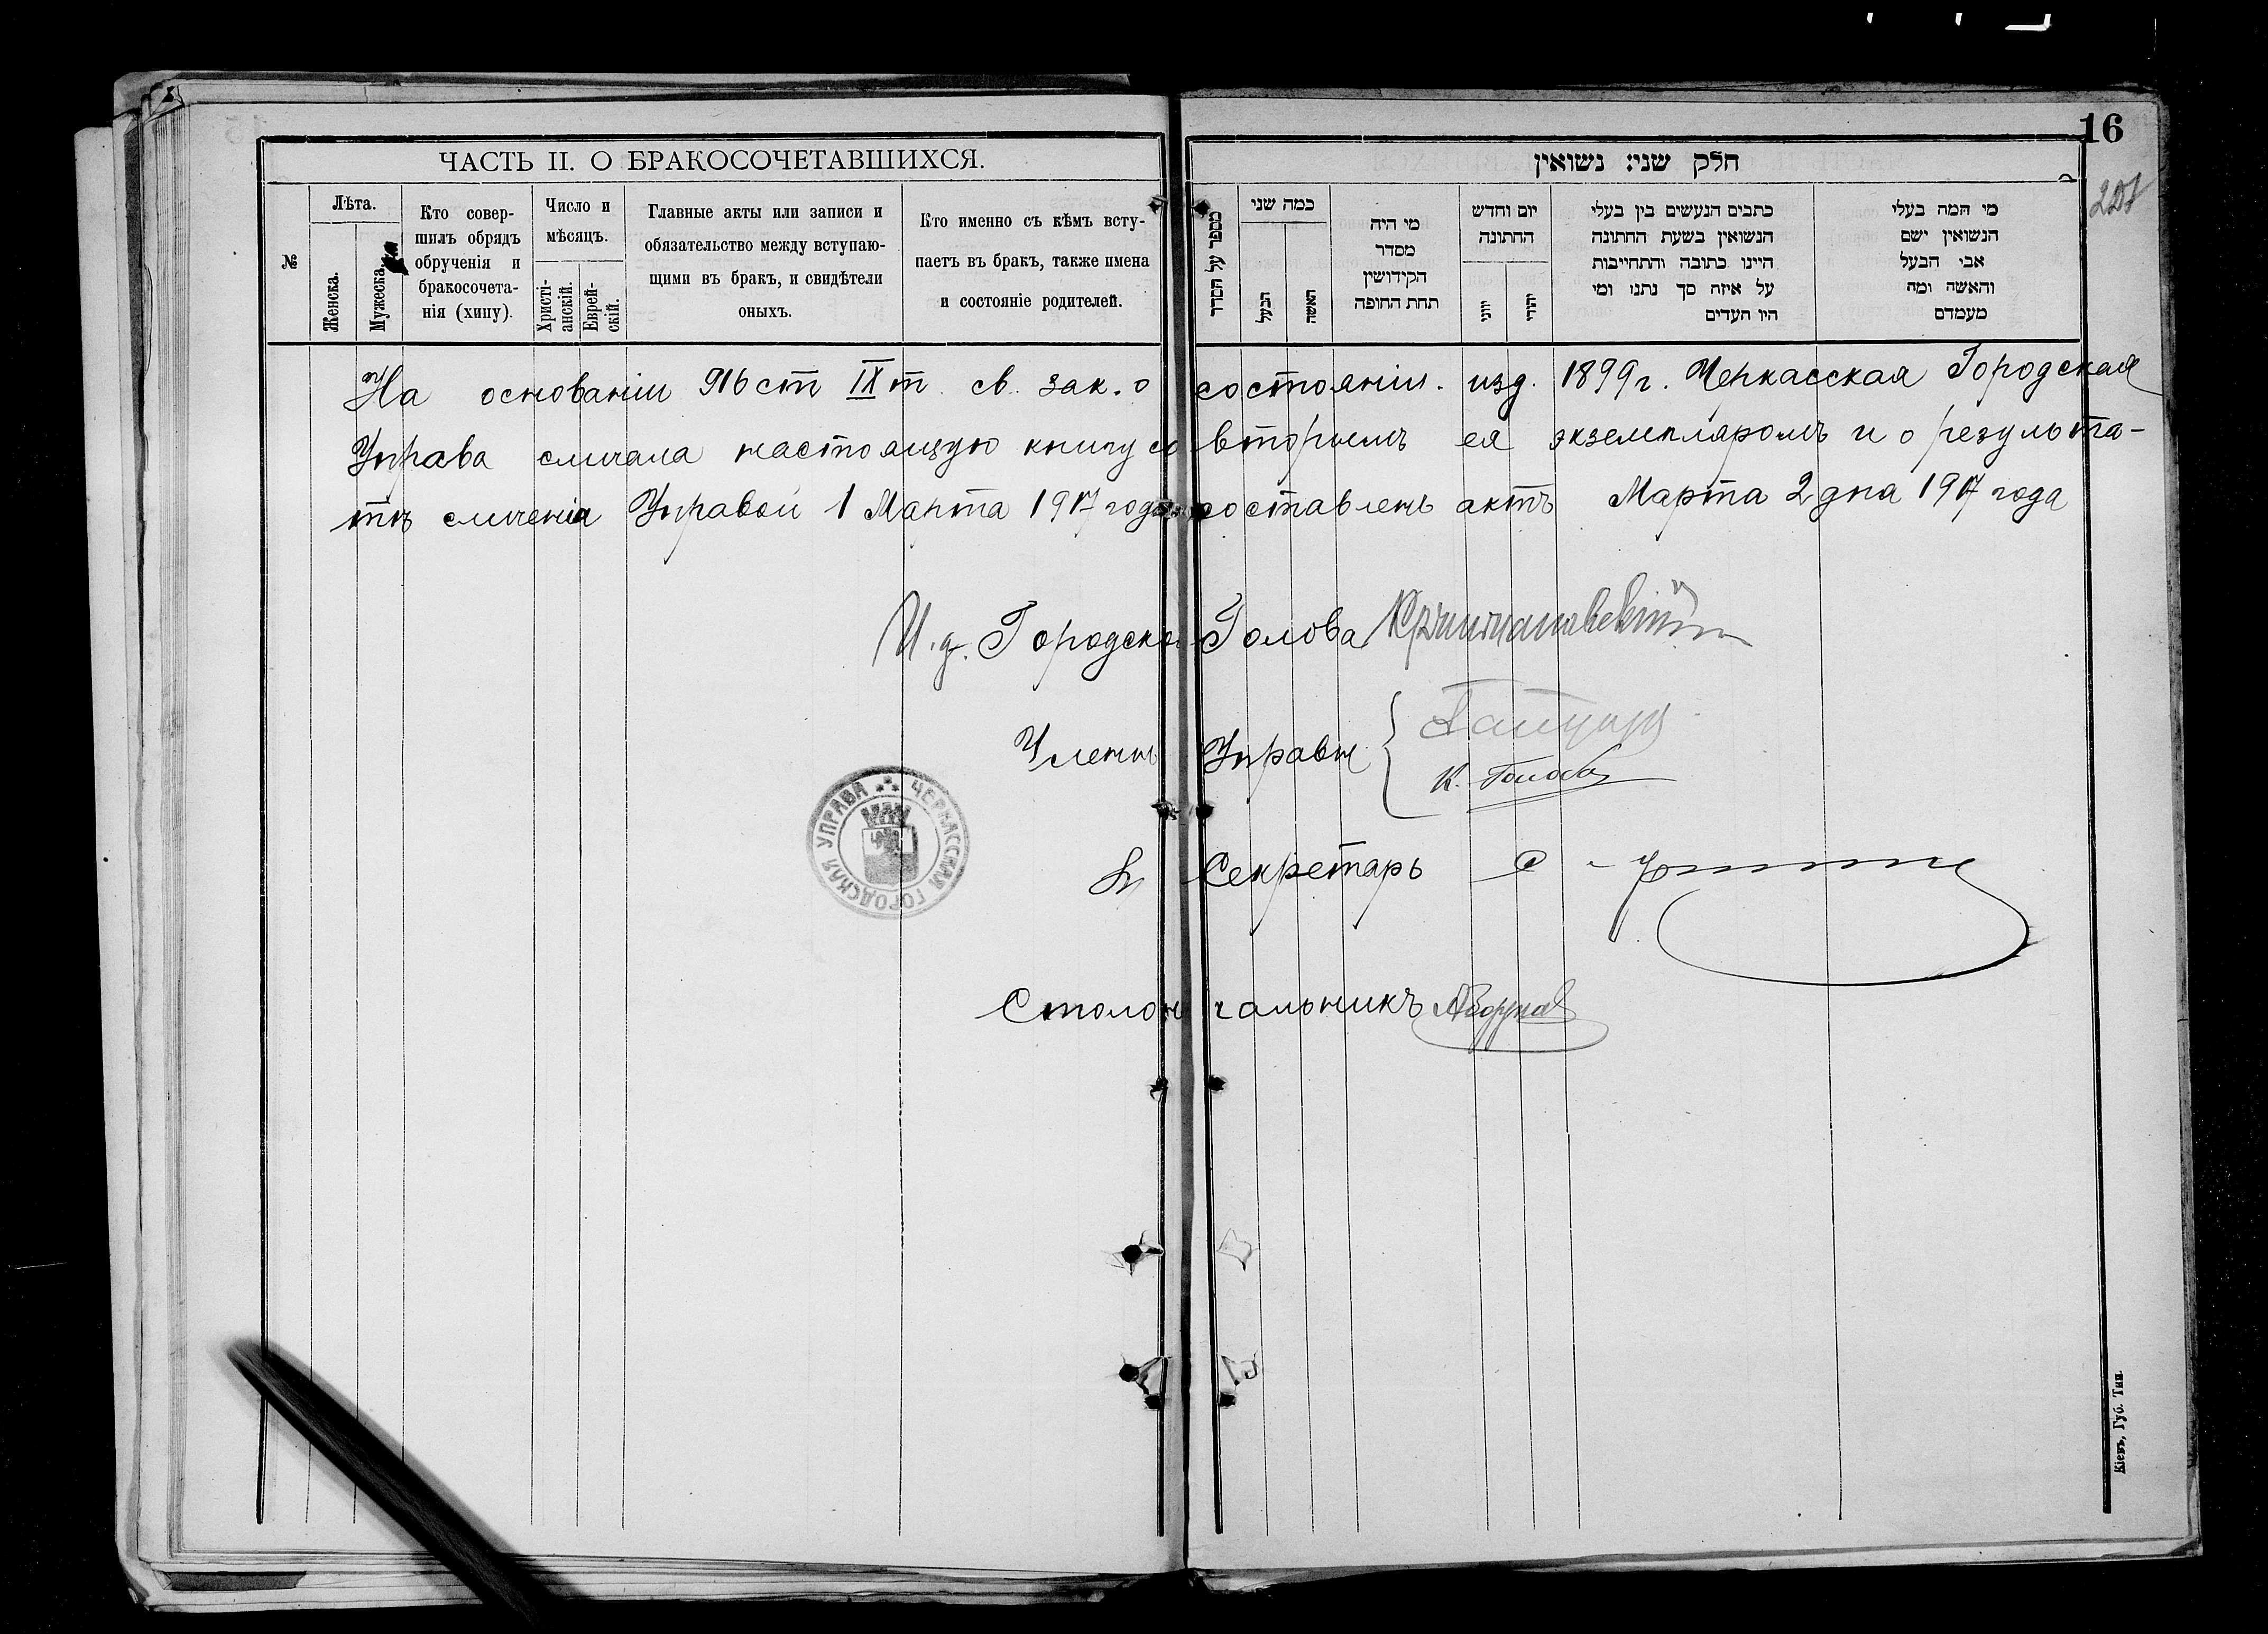 16
ЧАСТЬ II. О БРАКОСОЧЕТАВШИХСЯ.
№
Лѣта.
Женска.
Мужеска.
Кто совер-
шилъ обрядъ
обрученія и
бракосочета-
нія (хипу).
Число и
мѣсяцъ.
Христі-
анскій.
Еврей-
скій.
Главные акты или записи и
обязательство между вступаю-
щими въ бракъ, и свидѣтели
оныхъ.
Кто именно съ кѣмъ всту-
паетъ въ бракъ, также имена
и состояніе родителей.
חלק שני: נשואין
מספר על הסדר
כמה שני
הבעל
האשה
מי היה
מסדר
הקידושין
תחת החופה
יום וחדש
החתונה
יווני
יהודי
כתבים הנעשים בין בעלי
הנשואין בשעת החתונה
היינו כתובה והתחייבות
על איזה סך נתנו ומי
היו העדים
מי המה בעלי
הנשואין ושם
אבי הבעל
והאשה ומה
מעמדם
На основаніи 916 ст IX т. св. зак. о состояніи. изд. 1899 г. Черкасская Городская
Управа сличала настоящую книгу со вторымъ ея экземпляромъ и о результа-
тѣ сличенія Управой 1 Марта 1917 года составленъ актъ Марта 2 дня 1917 года
И.д. Городской Голова
Члены Управы
К. Голова
Секретарь
Столоначальникъ
ЧЕРКАССКАЯ ГОРОДСКАЯ УПРАВА
Кіевъ, Губ. Тип.